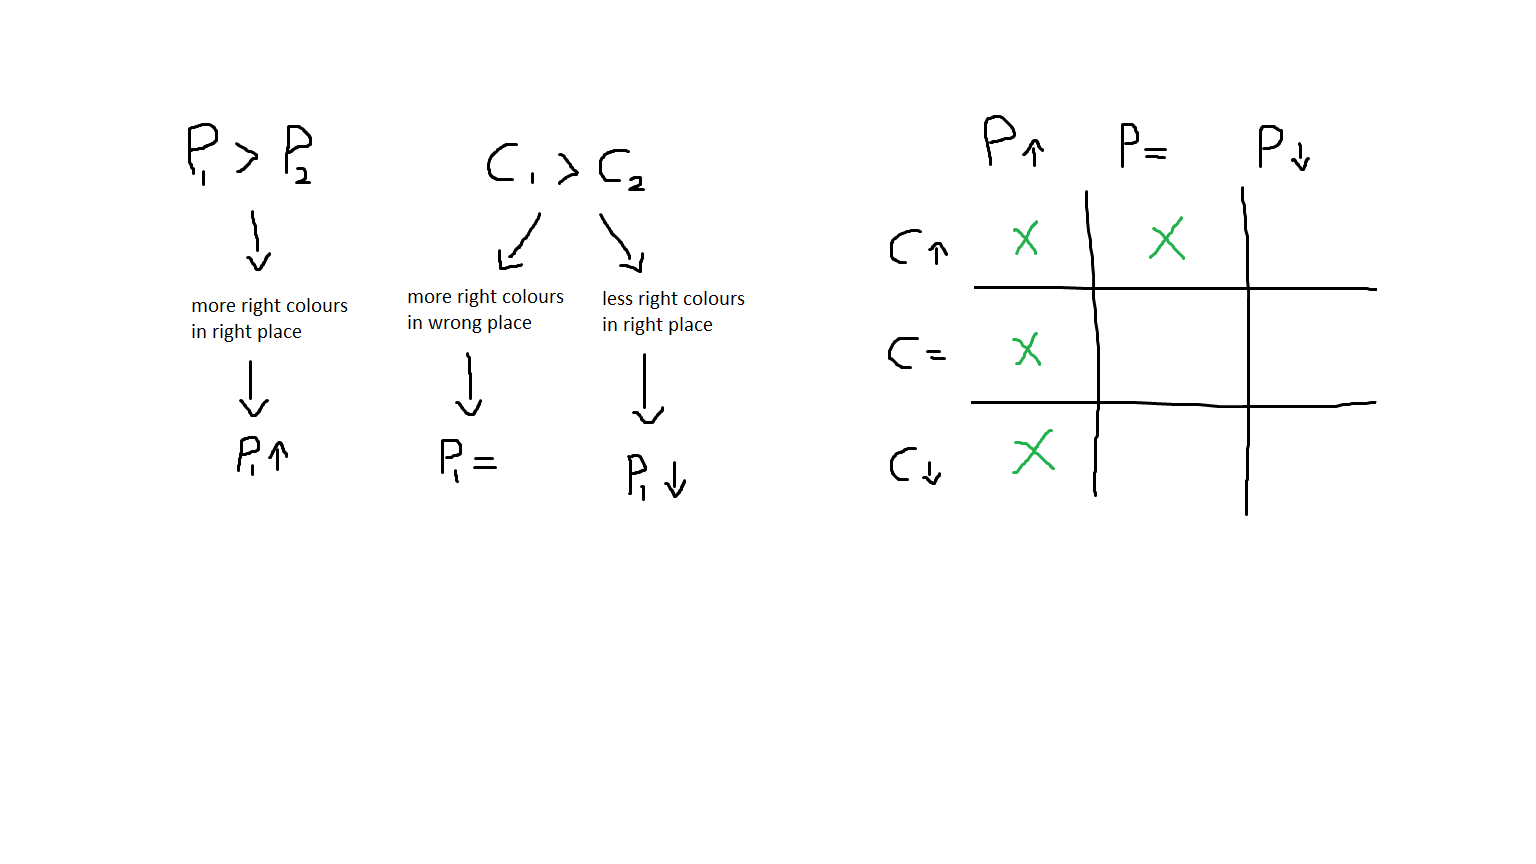 P₁ > P₂
C₁ > C₂
more right colours
in right place
more right colours
in wrong place
less right colours
in right place
P₁ ↑
P₁ =
P₁ ↓
P↑ P= P↓
C↑ X X
C= X
C↓ X